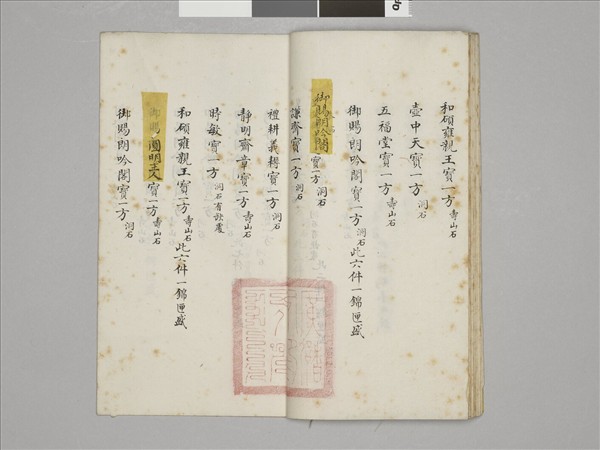 和碩雍親王寶一方壽山石
壺中天寶一方洞石
五福堂寶一方壽山石
御賜朗吟閣寶一方洞石此六件一錦匣盛
御賜朗吟閣寶一方洞石
謙齋寶一方洞石
禮耕義耨寶一方洞石
靜明齋章寶一方壽山石
時敏寶一方洞石有欹處
和碩雍親王寶一方壽山石此六件一錦匣盛
御賜圓明主人寶一方壽山石
御賜朗吟閣寶一方洞石